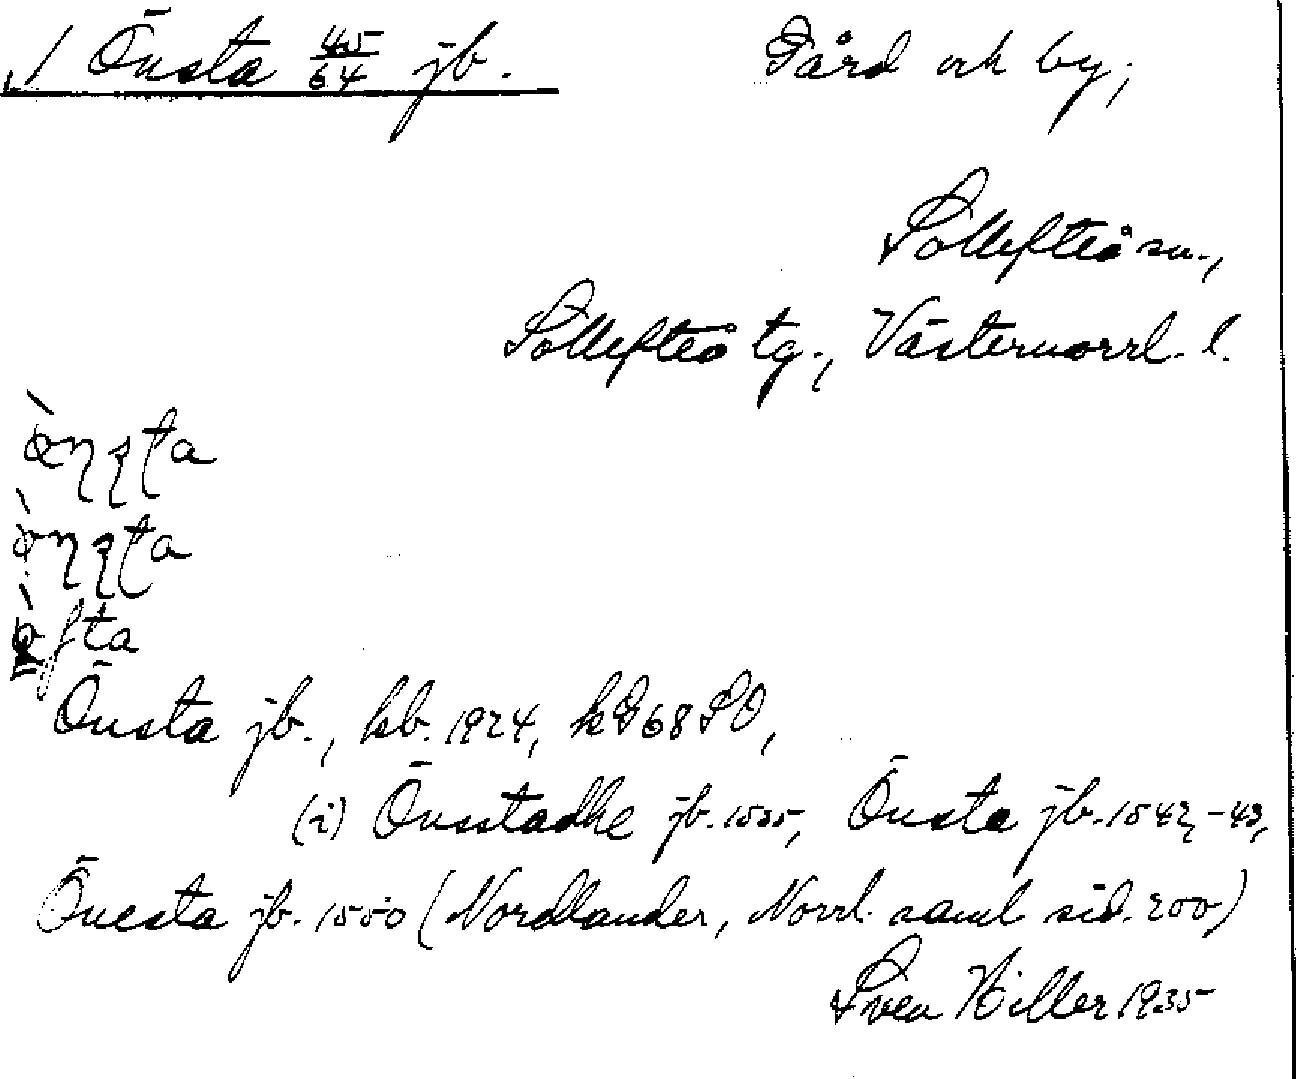 1 Önsta 45/64 jb. Gård och by,
Sollefteå sn.,
Sollefteå tg., Västernorrl. l.
Önsta jb., kb. 1924, kG68SO,
(i) Önsstadhe jb. 1535, Önsta jb. 1542, -43,
Önesta jb. 1550 (Nordlander, Norrl. saml sid. 200)
Sven Hiller 1935